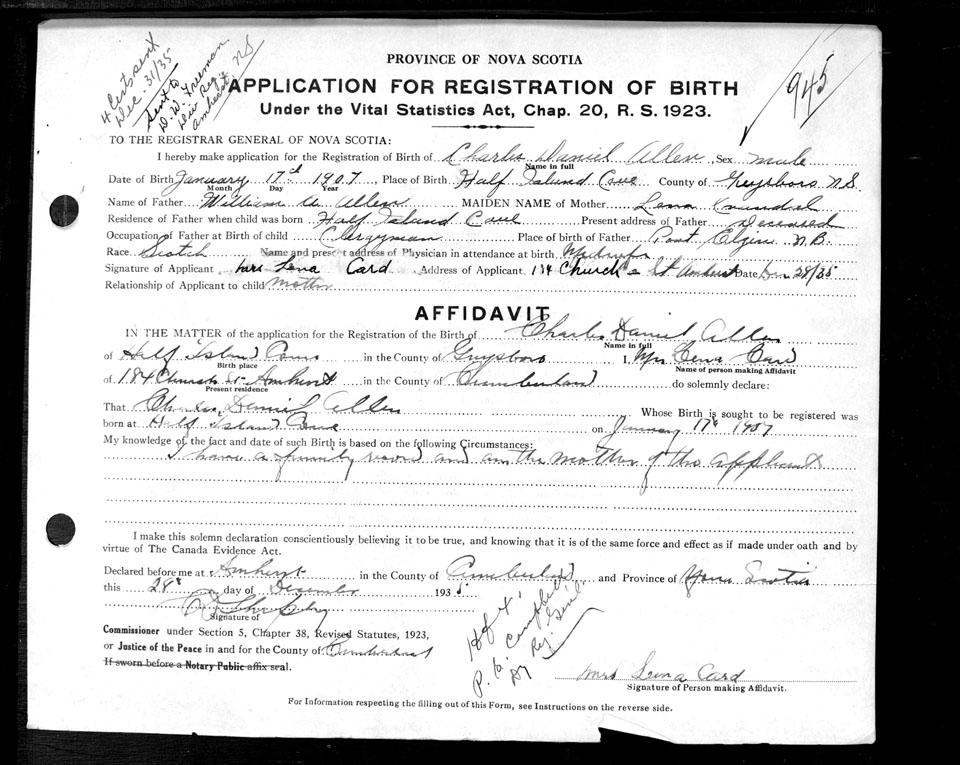 4 Certs sent
Dec. 31/35
Sent to
D. W. Freeman
Div Reg.
Amherst, NS
945
PROVINCE OF NOVA SCOTIA
APPLICATION FOR REGISTRATION OF BIRTH
Under the Vital Statistics Act, Chap. 20, R. S. 1923.
TO THE REGISTRAR GENERAL OF NOVA SCOTIA:
I hereby make application for the Registration of Birth of Charles Daniel Allen Sex male
Name in full
Date of Birth January 17th 1907 Place of Birth Half Island Cove County of Guysboro N.S.
Month Day Year
Name of Father William A Allen MAIDEN NAME of Mother Lena
Residence of Father when child was born Half Island Cove Present address of Father Deceased
Occupation of Father at Birth of child Clergyman Place of birth of Father Port Elgin N.B.
Race Scotch Name and present address of Physician in attendance at birth Midwife
Signature of Applicant Mrs Lena Card Address of Applicant Church St Amherst Date Dec 28/35
Relationship of Applicant to child mother
AFFIDAVIT
IN THE MATTER of the application for the Registration of the Birth of Charles Daniel Allen
Name in full
of Half Island Cove in the County of Guysboro I, Mrs Lena Card
Birth place Name of person making Affidavit
of 184 Church St Amherst in the County of Cumberland do solemnly declare:
Present residence
That Charles Daniel Allen Whose Birth is sought to be registered was
born at Half Island Cove on January 17th 1907
My knowledge of the fact and date of such Birth is based on the following Circumstances:
I have a family record and am the mother of the applicant
I make this solemn declaration conscientiously believing it to be true, and knowing that it is of the same force and effect as if made under oath and by
virtue of The Canada Evidence Act.
Declared before me at Amherst in the County of Cumberland and Province of Nova Scotia
this 28th day of December 1935.
Signature of
Commissioner under Section 5, Chapter 38, Revised Statutes, 1923,
or Justice of the Peace in and for the County of Cumberland
If sworn before a Notary Public affix seal.
P. G. Campbell
Dy Reg. Gen'l
Mrs Lena Card
Signature of Person making Affidavit.
For Information respecting the filling out of this Form, see Instructions on the reverse side.